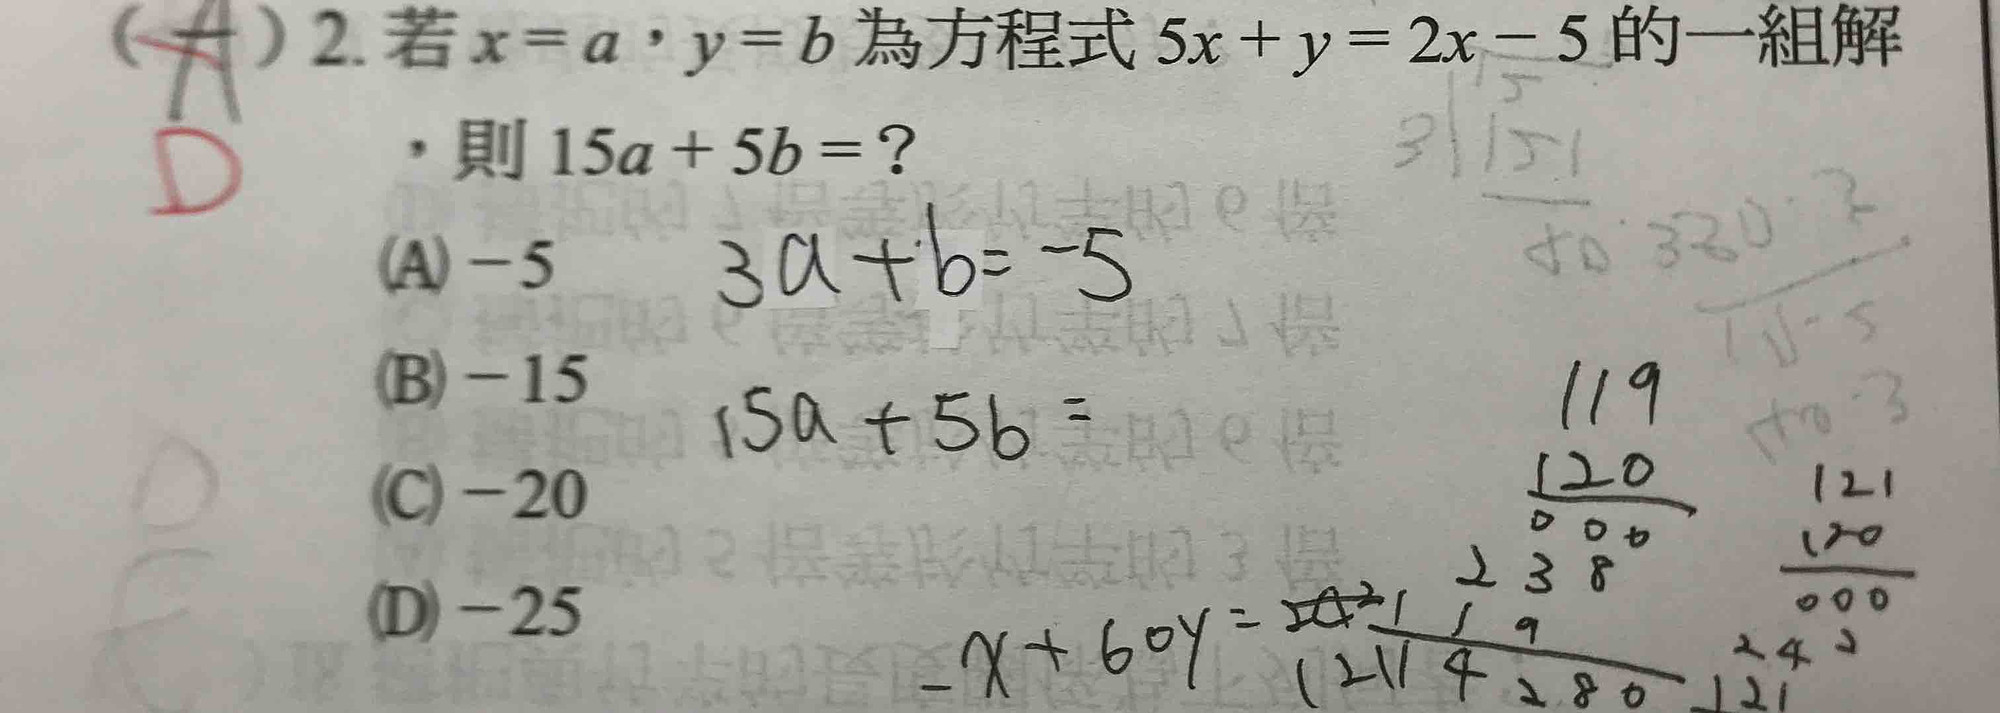 (A) 2. 若 x = a，y = b 為方程式 5x + y = 2x − 5 的一組解
D
，則 15a + 5b = ?
(A) −5
3a + b = -5
(B) −15
15a + 5b =
(C) −20
(D) −25
119
120
000
238
119
14280
121
120
000
242
121
-x + 60y =
3 151